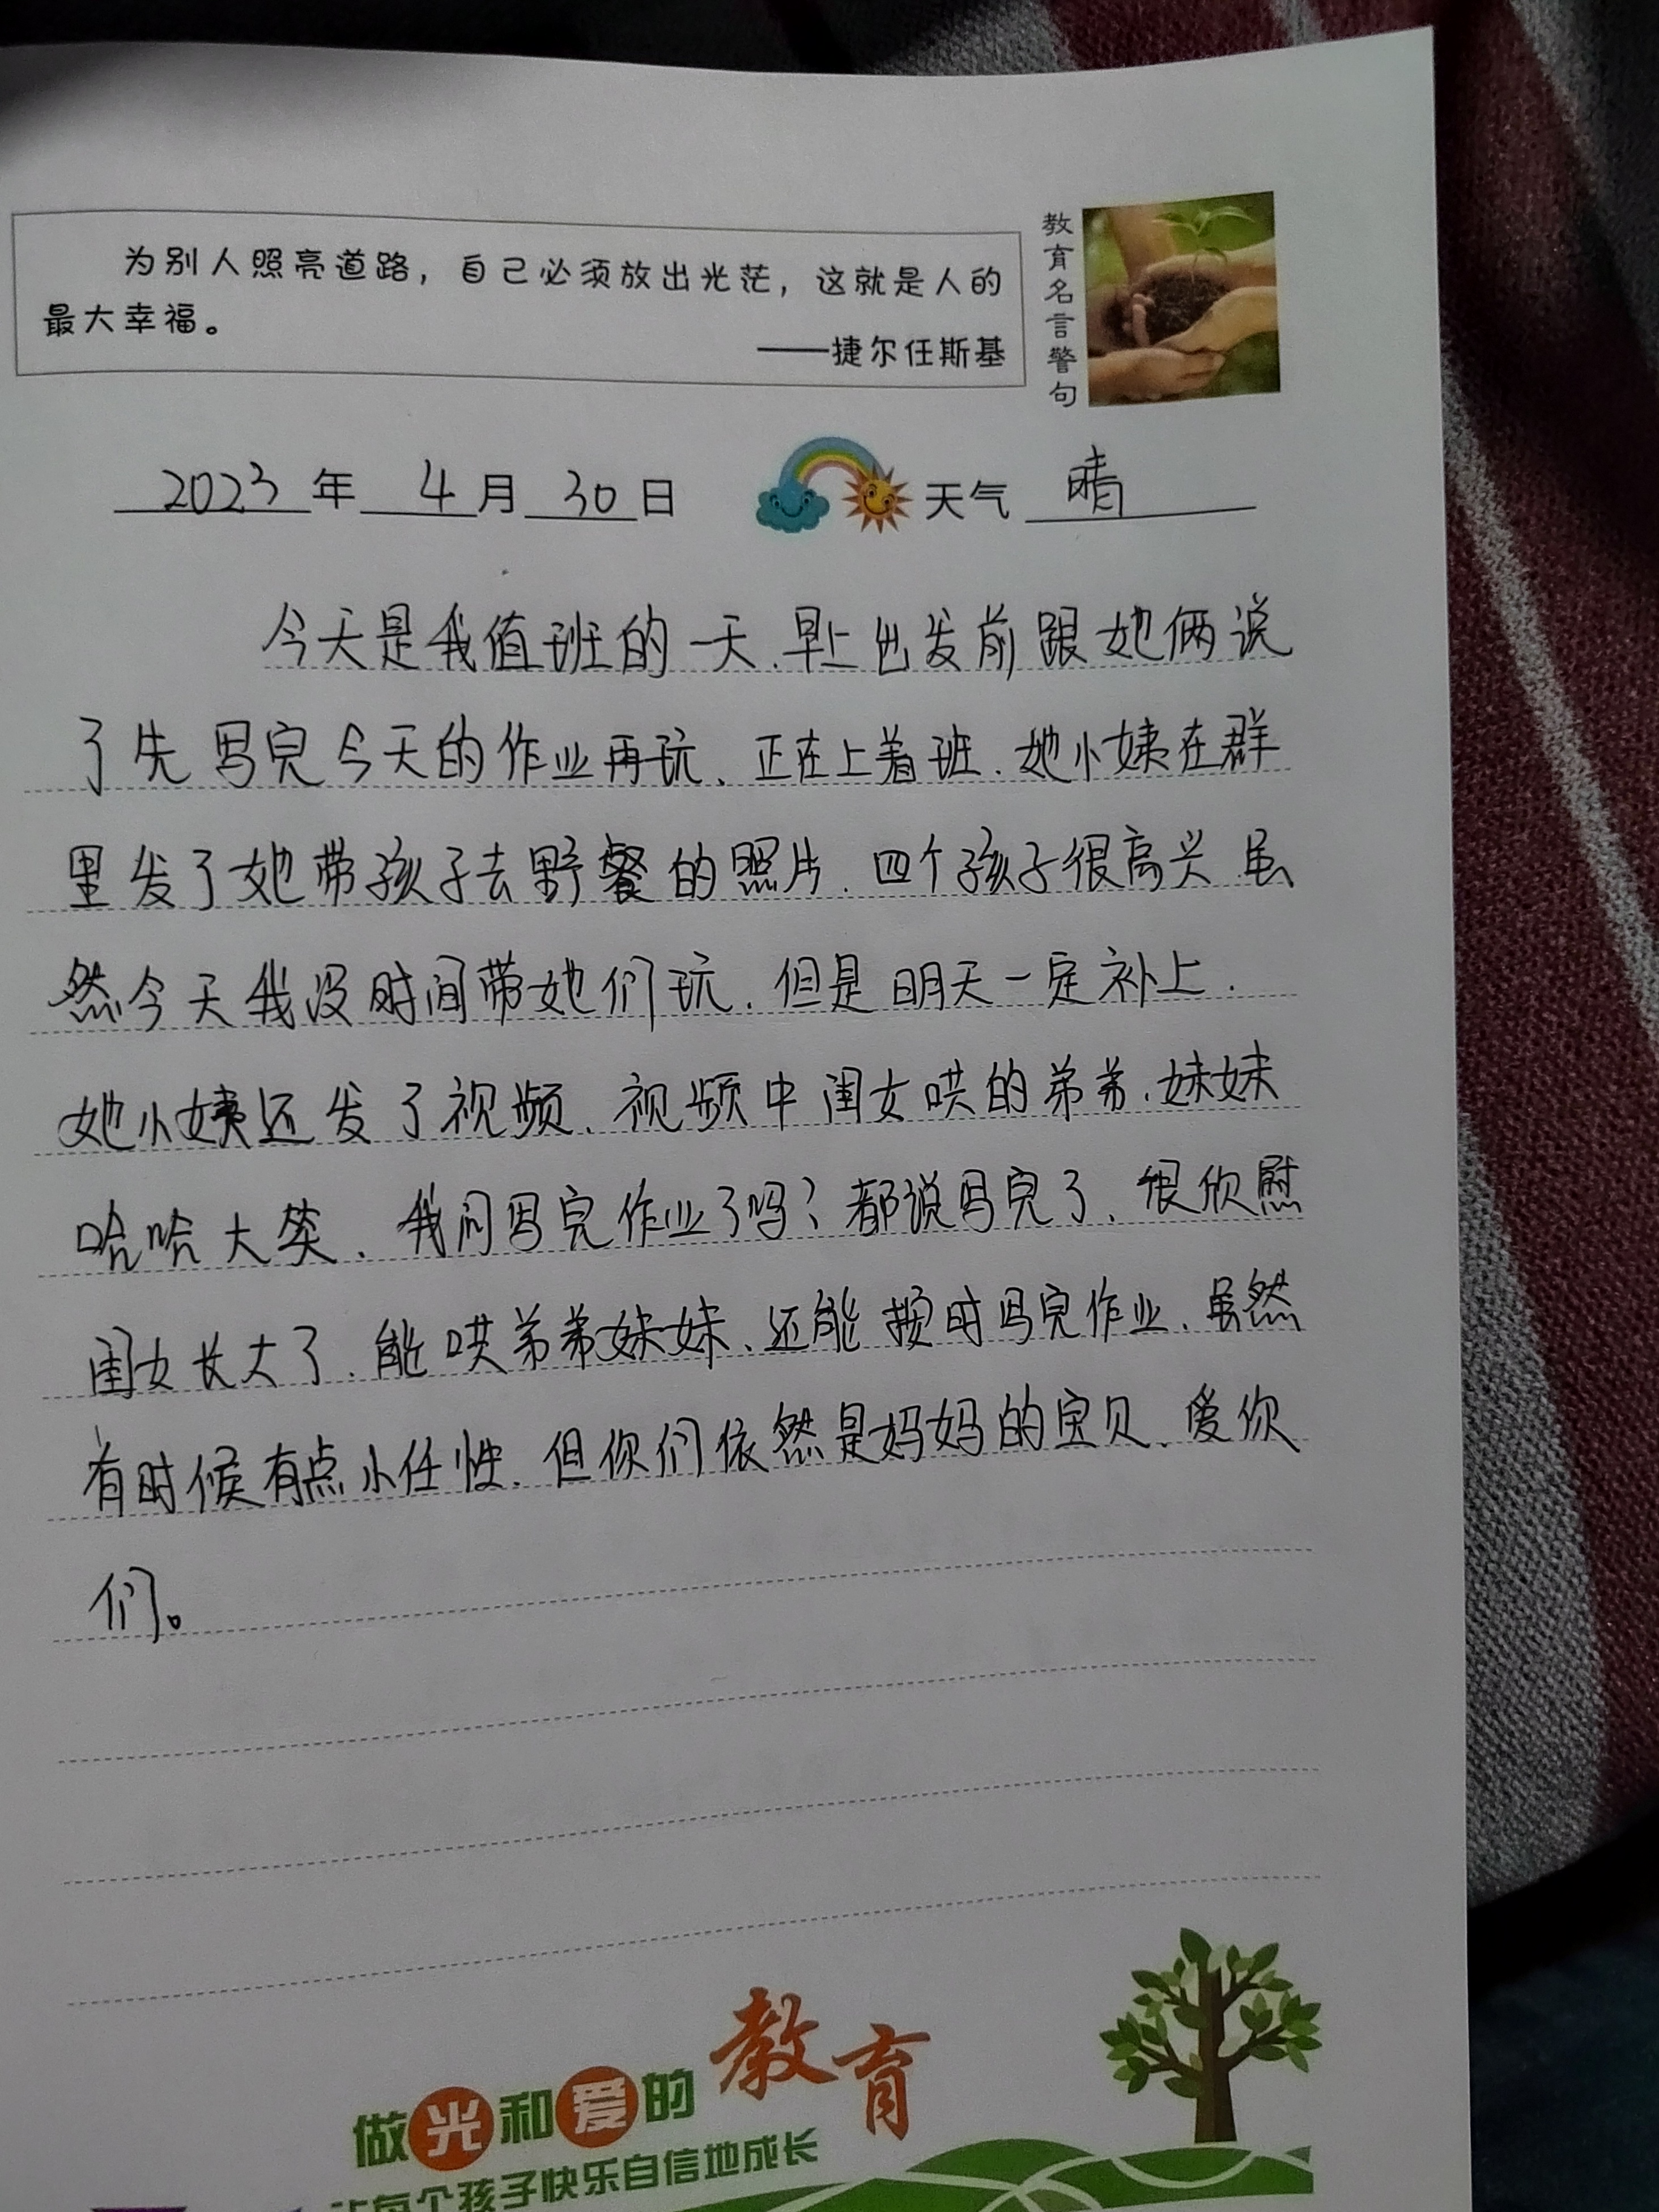 为别人照亮道路，自己必须放出光茫，这就是人的
最大幸福。
——捷尔任斯基
教育名言警句
2023年4月30日 天气 晴
今天是我值班的一天.早上出发前跟她俩说
了先写完今天的作业再玩、正在上着班.她小姨在群
里发了她带孩子去野餐的照片.四个孩子很高兴 虽
然今天我没时间带她们玩.但是明天一定补上.
她小姨还发了视频、视频中闺女哄的弟弟.妹妹
哈哈大笑.我问写完作业了吗?都说写完了、很欣慰
闺女长大了.能哄弟弟妹妹、还能按时写完作业.虽然
有时候有点小任性.但你们依然是妈妈的宝贝、爱你
们。
做光和爱的教育
让每个孩子快乐自信地成长